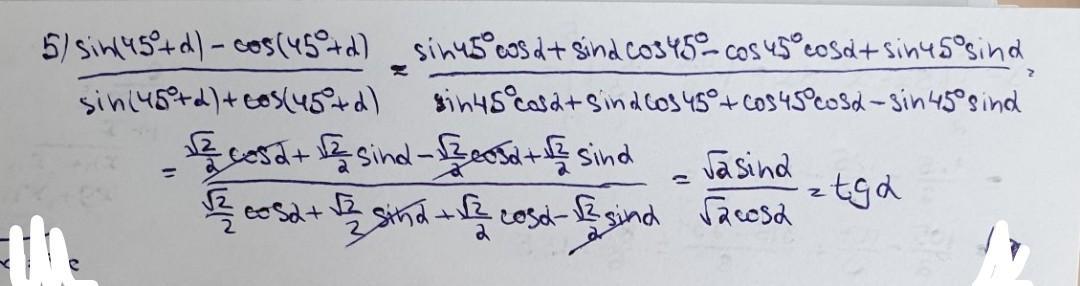 5) sin(45°+α) - cos(45°+α) / sin(45°+α) + cos(45°+α) = sin45°cosα + sinα cos45° - cos45°cosα + sin45°sinα / sin45°cosα + sinα cos45° + cos45°cosα - sin45°sinα =
= √2/2 cosα + √2/2 sinα - √2/2 cosα + √2/2 sinα / √2/2 cosα + √2/2 sinα + √2/2 cosα - √2/2 sinα = √2 sinα / √2 cosα = tgα